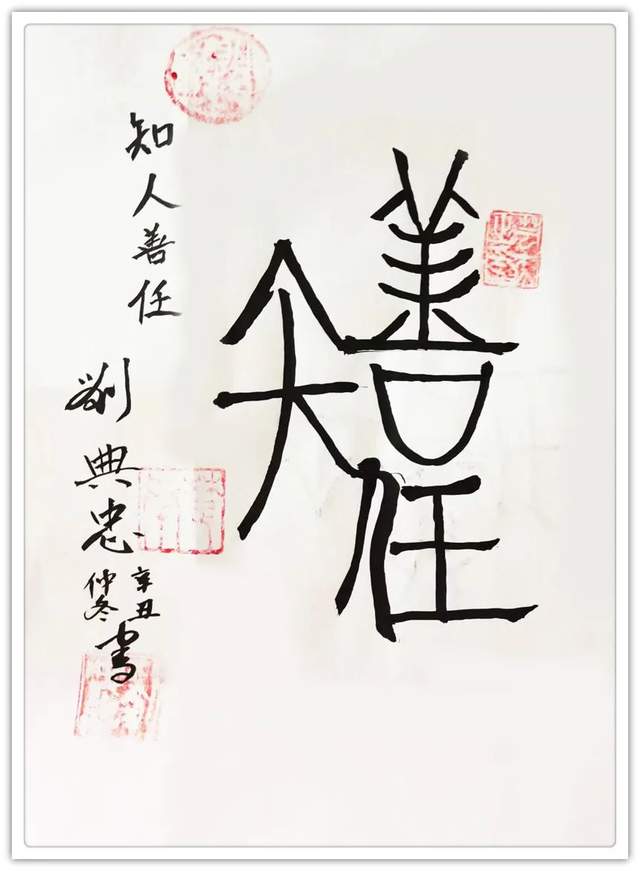 知人善任
知人善任
劉典忠
辛丑
仲冬
書